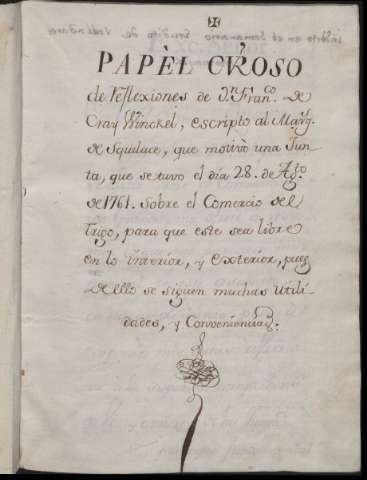 inserto en el Semanario Erudito de Valladares
PAPÈL CVR̃OSO
de reflexiones de Dn. Franco. de
Cray Winckel, escripto al Marq.
de Squilace, que motivò una Jun-
ta, que se tuvo el dia 28. de Agto.
de 1761. sobre el Comercio del
Trigo, para que este sea libre
en lo interior, y exterior, pues
de ello se siguen muchas utili-
dades, y Conveniencias.